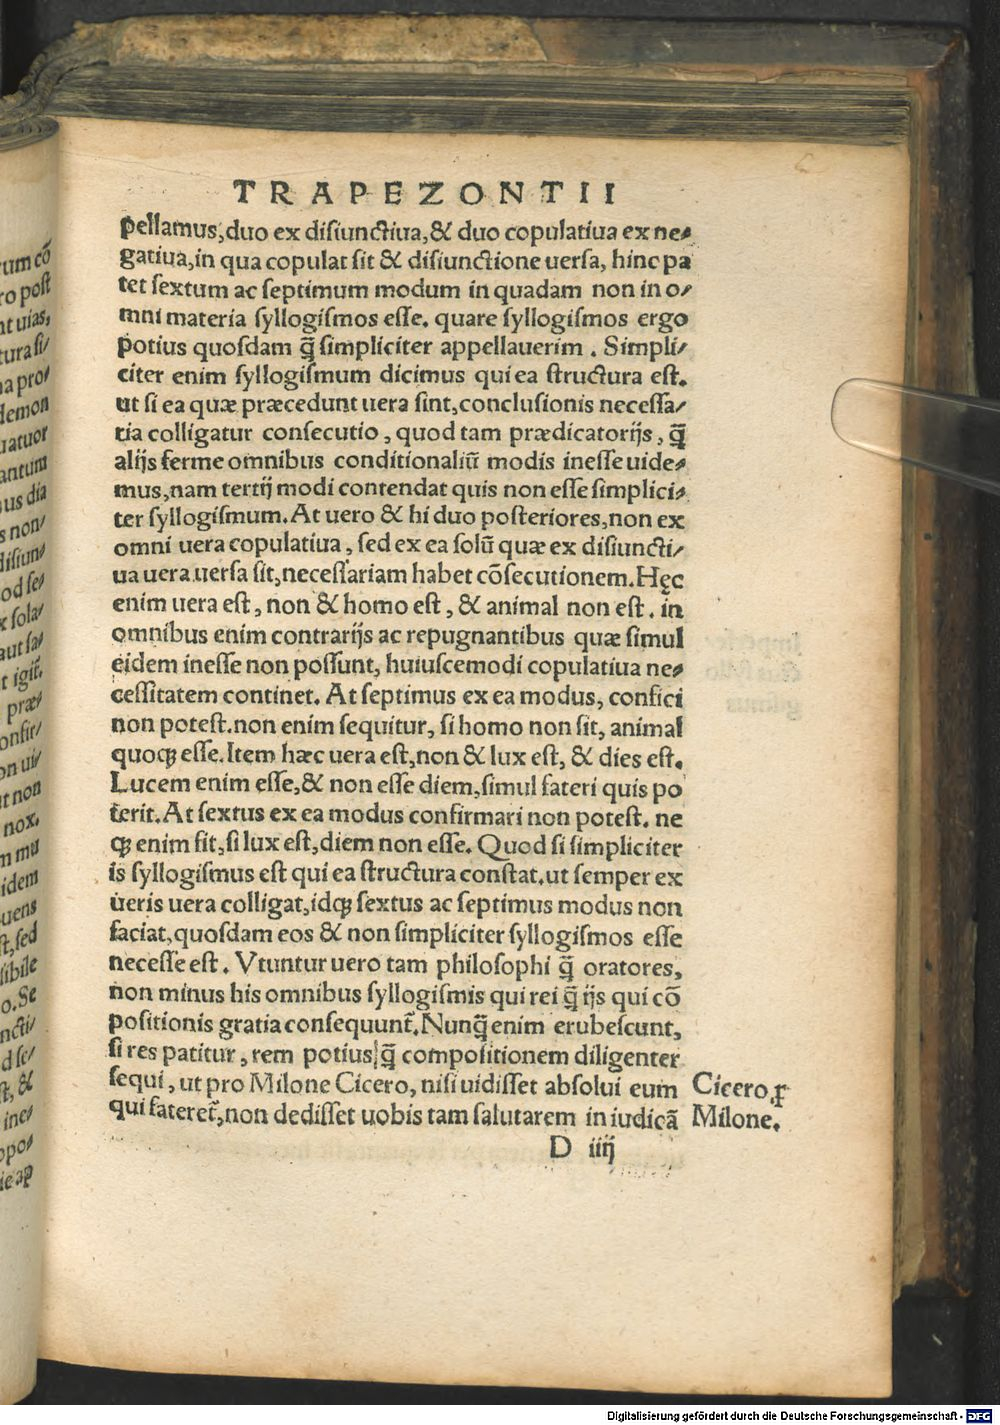 TRAPEZONTII
pellamus, duo ex disiunctiua, & duo copulatiua ex ne-
gatiua, in qua copulat sit & disiunctione uersa, hinc pa
tet sextum ac septimum modum in quadam non in o-
mni materia syllogismos esse. quare syllogismos ergo
potius quosdam q̃ simpliciter appellauerim. Simpli-
citer enim syllogismum dicimus qui ea structura est.
ut si ea quæ præcedunt uera sint, conclusionis necessa-
ria colligatur consecutio, quod tam prædicatorijs, q̃
alijs ferme omnibus conditionaliũ modis inesse uide-
mus, nam tertij modi contendat quis non esse simplici-
ter syllogismum. At uero & hi duo posteriores, non ex
omni uera copulatiua, sed ex ea solũ quæ ex disiuncti-
ua uera uersa sit, necessariam habet cõsecutionem. Hęc
enim uera est, non & homo est, & animal non est. in
omnibus enim contrarijs ac repugnantibus quæ simul
eidem inesse non possunt, huiuscemodi copulatiua ne-
cessitatem continet. At septimus ex ea modus, confici
non potest. non enim sequitur, si homo non sit, animal
quoqꝫ esse. Item hæc uera est, non & lux est, & dies est.
Lucem enim esse, & non esse diem, simul fateri quis po
terit. At sextus ex ea modus confirmari non potest. ne
qꝫ enim fit, si lux est, diem non esse. Quod si simpliciter
is syllogismus est qui ea structura constat, ut semper ex
ueris uera colligat, idqꝫ sextus ac septimus modus non
faciat, quosdam eos & non simpliciter syllogismos esse
necesse est. Vtuntur uero tam philosophi q̃ oratores,
non minus his omnibus syllogismis qui rei q̃ ijs qui cõ
positionis gratia consequunt̃. Nunq̃ enim erubescunt,
si res patitur, rem potius q̃ compositionem diligenter
sequi, ut pro Milone Cicero, nisi uidisset absolui eum
qui fateret̃, non dedisset uobis tam salutarem in iudicã
Cicero ꝓ
Milone.
D iiij
rum cõ
ro post
nt uias,
tura si-
na pro-
demon
uatuor
antum
us dia
s non-
disiun-
od se-
x sola-
aut sa-
t igit̃.
præ-
onfir-
on ui-
ut non
nox.
m mu
idem
uens
st, sed
sibile
o. Se
ncti-
d se-
st, &
ine-
opo-
ie ap
Digitalisierung gefördert durch die Deutsche Forschungsgemeinschaft - DFG